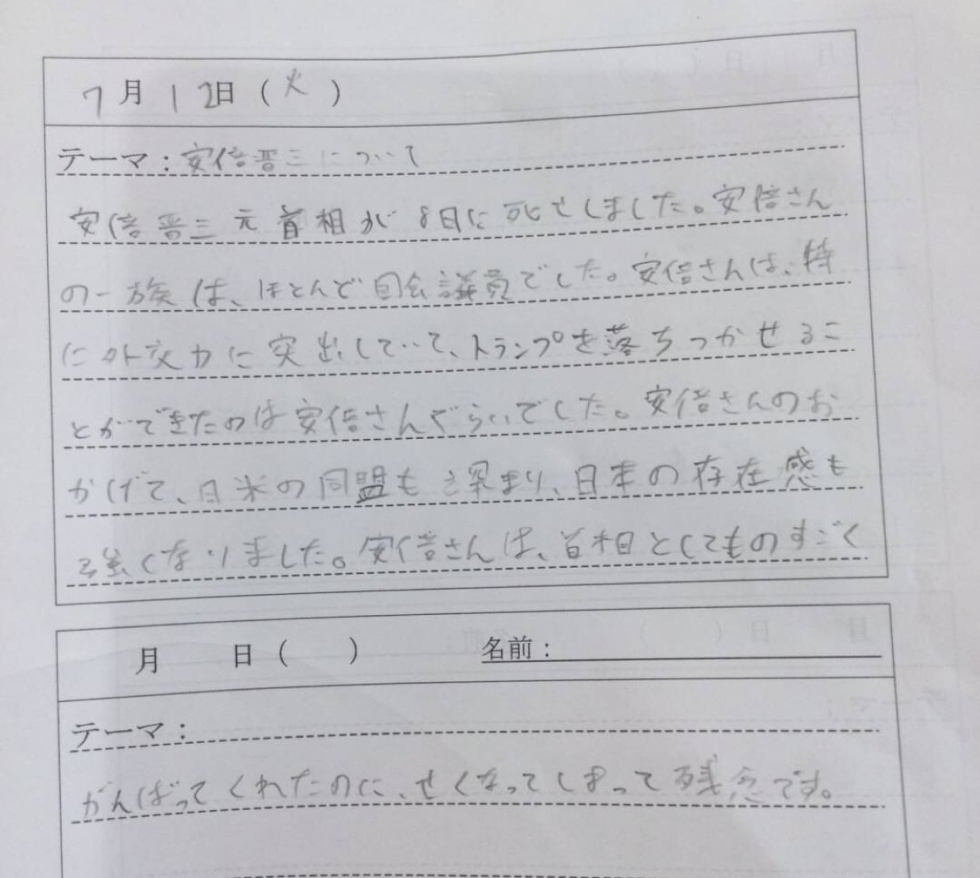 7月12日(火)
テーマ:安倍晋三について
安倍晋三元首相が8日に死亡しました。安倍さん
の一族は、ほとんど国会議員でした。安倍さんは、特
に外交力に突出していて、トランプを落ちつかせるこ
とができたのは安倍さんぐらいでした。安倍さんのお
かげで、日米の同盟も深まり、日本の存在感も
強くなりました。安倍さんは、首相としてものすごく
月 日( ) 名前:
テーマ:
がんばってくれたのに、亡くなってしまって残念です。